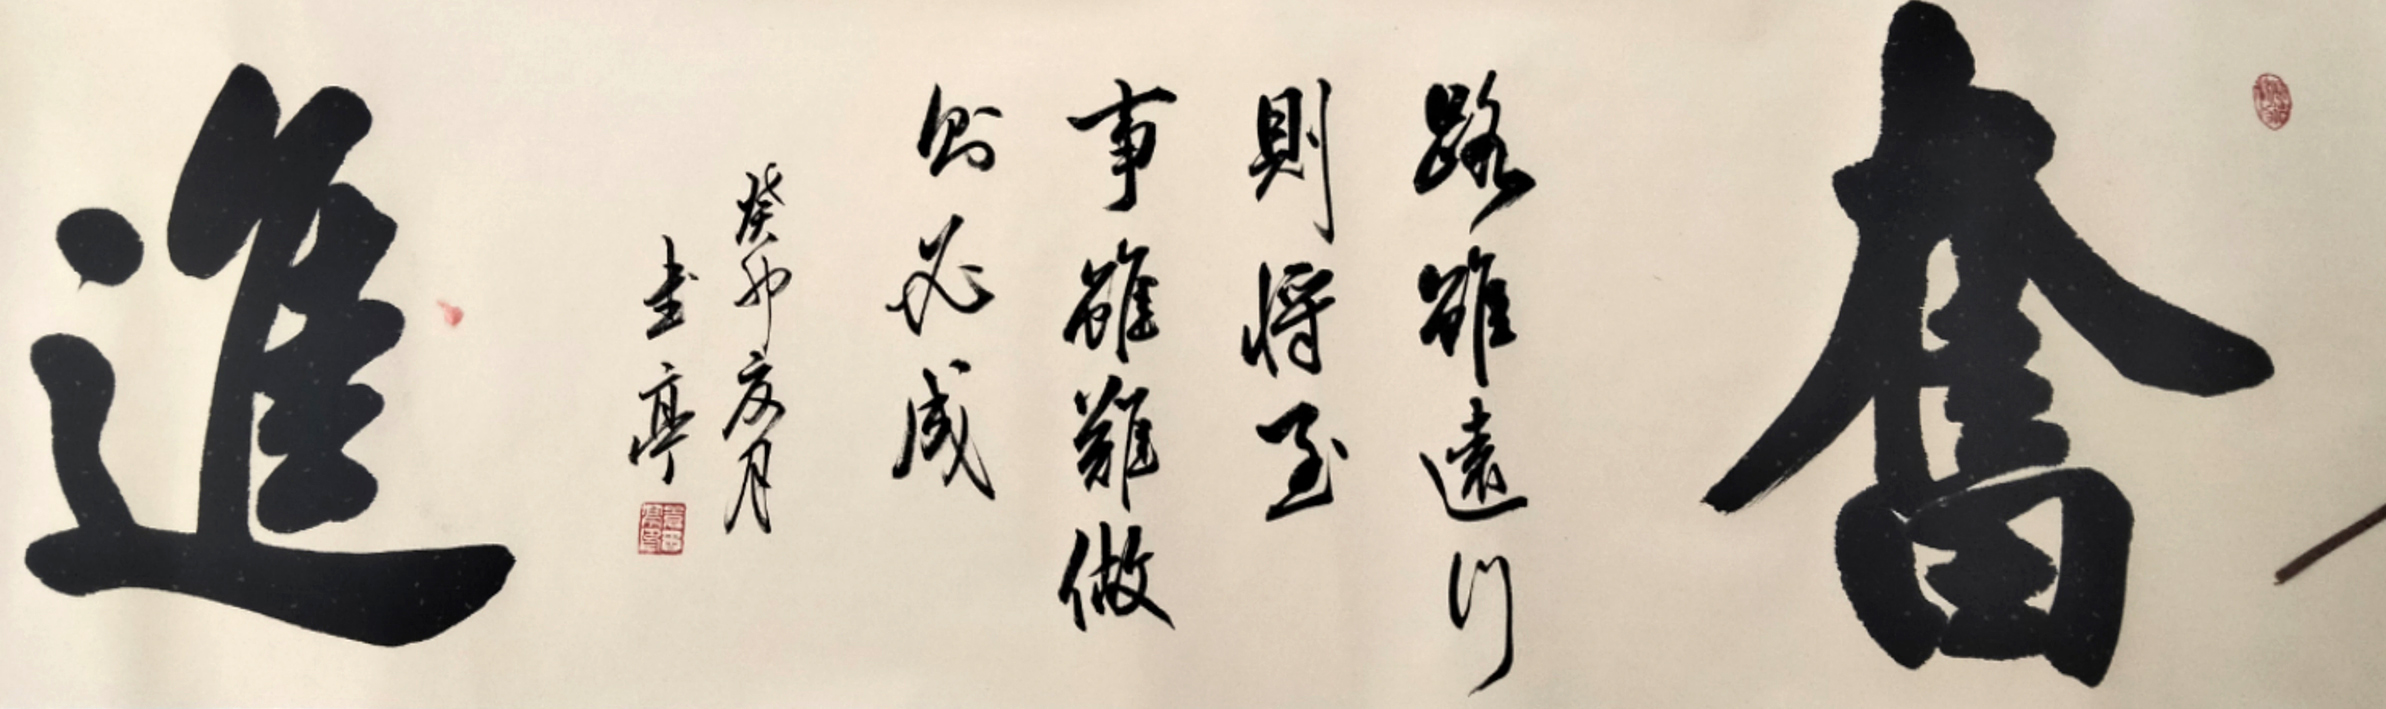 奮
路雖遠行
則將至
事雖難做
則必成
癸卯亥月
書亭
進